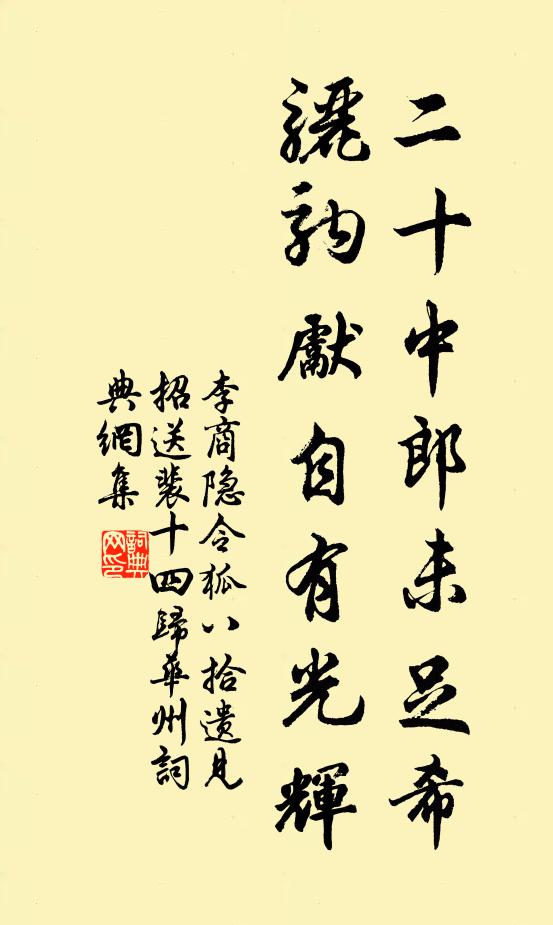 二十中郎未足希
驪駒獻自有光輝
李商隐令狐八拾遺見
招送裴十四歸華州詞
典網集
詞典
网印